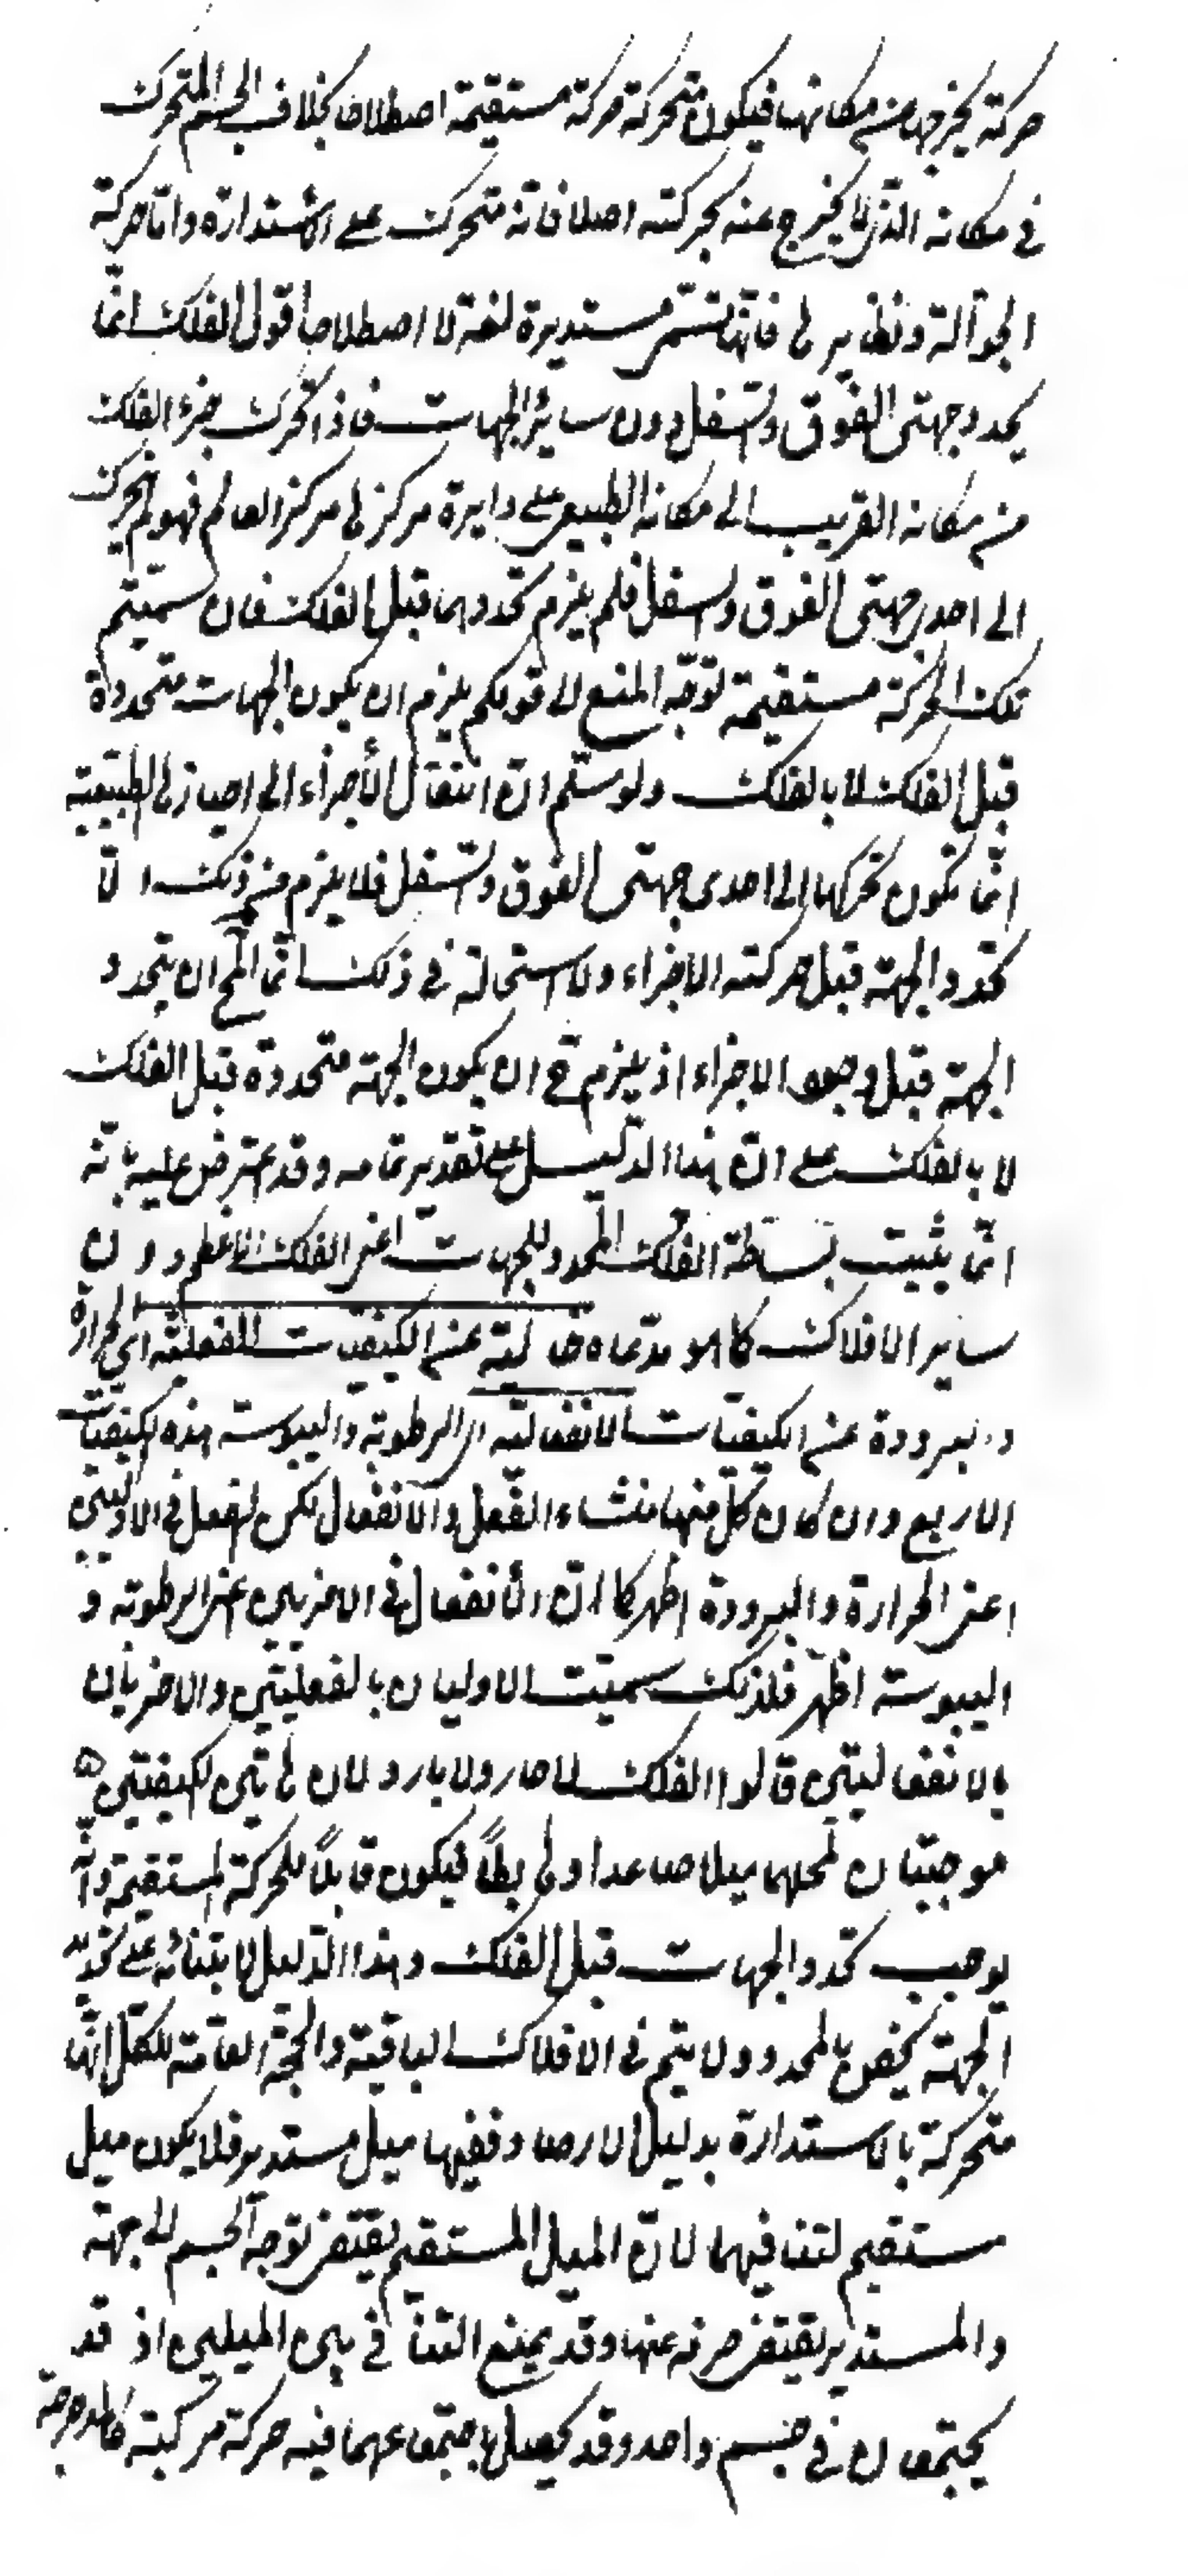 حركة يخرجها من مكانها فيكون متحركة حركة مستقيمة اصطلاحا بخلاف الجسم المتحرك
في مكانه الذي لا يخرج عنه بحركته اصلا فانه متحرك على الاستدارة واما حركة
الجوالة ونظايرها فانها تسمى مستديرة لغة لا اصطلاحا اقول الفلك انما
يحدد جهتي الفوق والسفل دون سائر الجهات فاذا تحرك جزء الفلك
من مكانه القريب الى مكانه الطبيعي على دايرة مركزها مركز العالم فهو لم يتحرك
الى احدى جهتي الفوق والسفل فلم يلزم تحددهما قبل الفلك فان سميتم
تلك الحركة مستقيمة توجه المنع لا قولكم يلزم ان يكون الجهات متحددة
قبل الفلك لا بالفلك ولو سلم ان انتقال الأجزاء الى احيازها الطبيعية
انما يكون تحركها الى احدى جهتي الفوق والسفل فلا يلزم من ذلك الا
تحدد الجهة قبل حركته الاجزاء ولا استحالة في ذلك انما المح ان يتحدد
الجهة قبل وجود الاجزاء اذ يلزم ح ان يكون الجهة متحددة قبل الفلك
لا بالفلك على ان هذا الدليل على تقدير تمامه وقد عترض عليه بانه
انما يثبت بساطة الفلك المحدد للجهات اعني الفلك الاعظم دون
ساير الافلاك كما هو مدعاه خالية عن الكيفيات الفعلية اي الحرارة
والبرودة عن الكيفيات الانفعالية اي الرطوبة واليبوسة هذه الكيفيات
الاربع وان كان كل منها منشاء الفعل والانفعال لكن الفعل في الاوليين
اعني الحرارة والبرودة اظهر كما ان الانفعال في الاخريين اعني الرطوبة و
اليبوسة اظهر فلذلك سميت الاوليان بالفعليتين والاخريان
بالانفعاليتين قالوا الفلك لا حار ولا بارد لان هاتين الكيفيتين
موجبتان لمحلهما ميلا صاعدا وهابطاً فيكون قابلاً للحركة المستقيمة وانه
يوجب تحدد الجهات قبل الفلك وهذا الدليل لابتنائه على تحديد
الجهة يخص بالمحدد ولا يتم في الافلاك الباقية والحجة العامة للكل انها
متحركة بالاستدارة بدليل الارصاد ففيها ميل مستدير فلا يكون ميل
مستقيم لتنافيهما لان الميل المستقيم يقتضي توجه الجسم الى جهة
والمستدير يقتضي صرفه عنها وقد يمنع التنافي بين الميلين اذ قد
يجتمعان في جسم واحد وقد يحصل باجتماعهما فيه حركة مركبة كالدحرجة